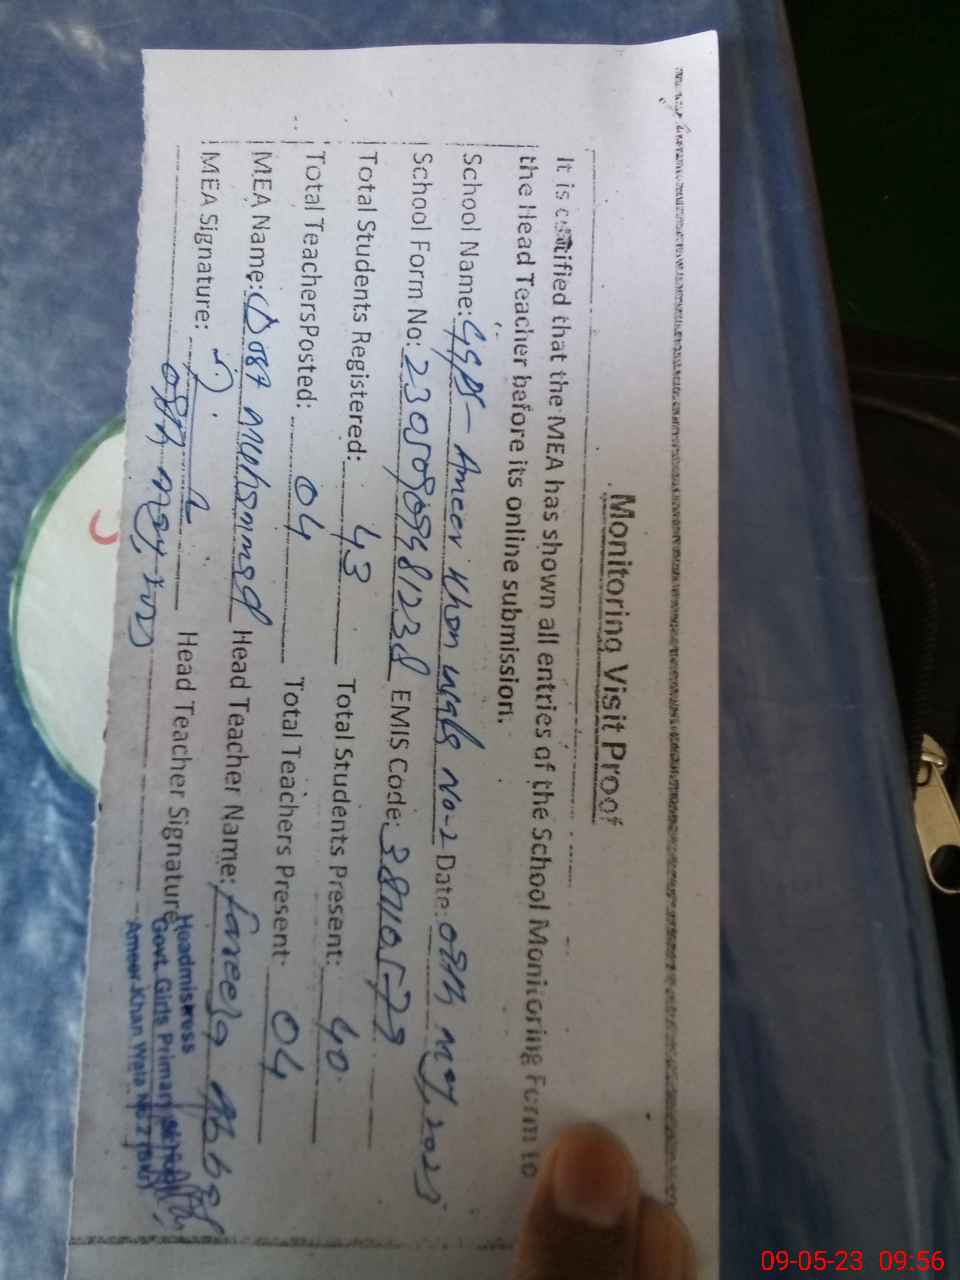 Monitoring Visit Proof
It is certified that the MEA has shown all entries of the School Monitoring Form to
the Head Teacher before its online submission.
School Name: GGPS- Ameer Khan wala No-2 Date: 09th May, 2023
School Form No: EMIS Code:
Total Students Registered: 43 Total Students Present: 40
Total TeachersPosted: 04 Total Teachers Present: 04
MEA Name: Muhammad Head Teacher Name: Abbas
MEA Signature: Head Teacher Signature
09th May, 2023
Headmistress
Govt. Girls Primary School
Ameer Khan Wala No.2
09-05-23 09:56